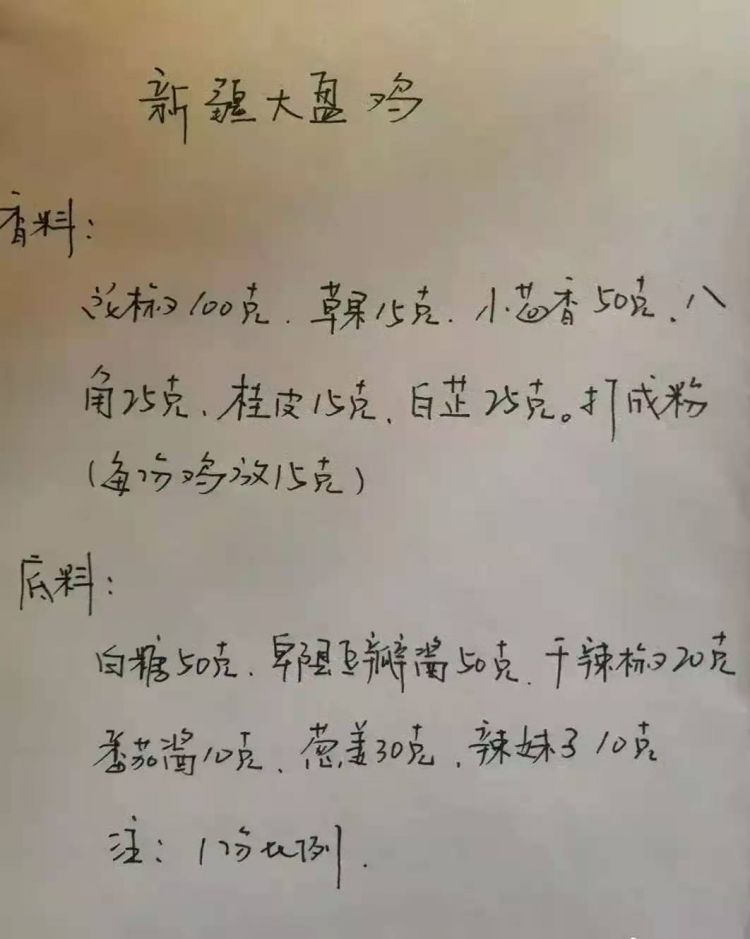 新疆大盘鸡
香料:
花椒100克、草果15克、小茴香50克、八
角25克、桂皮15克、白芷25克。打成粉
(每份鸡放15克)
底料:
白糖50克、郫县豆瓣酱50克、干辣椒20克
番茄酱10克、葱姜30克、辣妹子10克
注:1份比例.